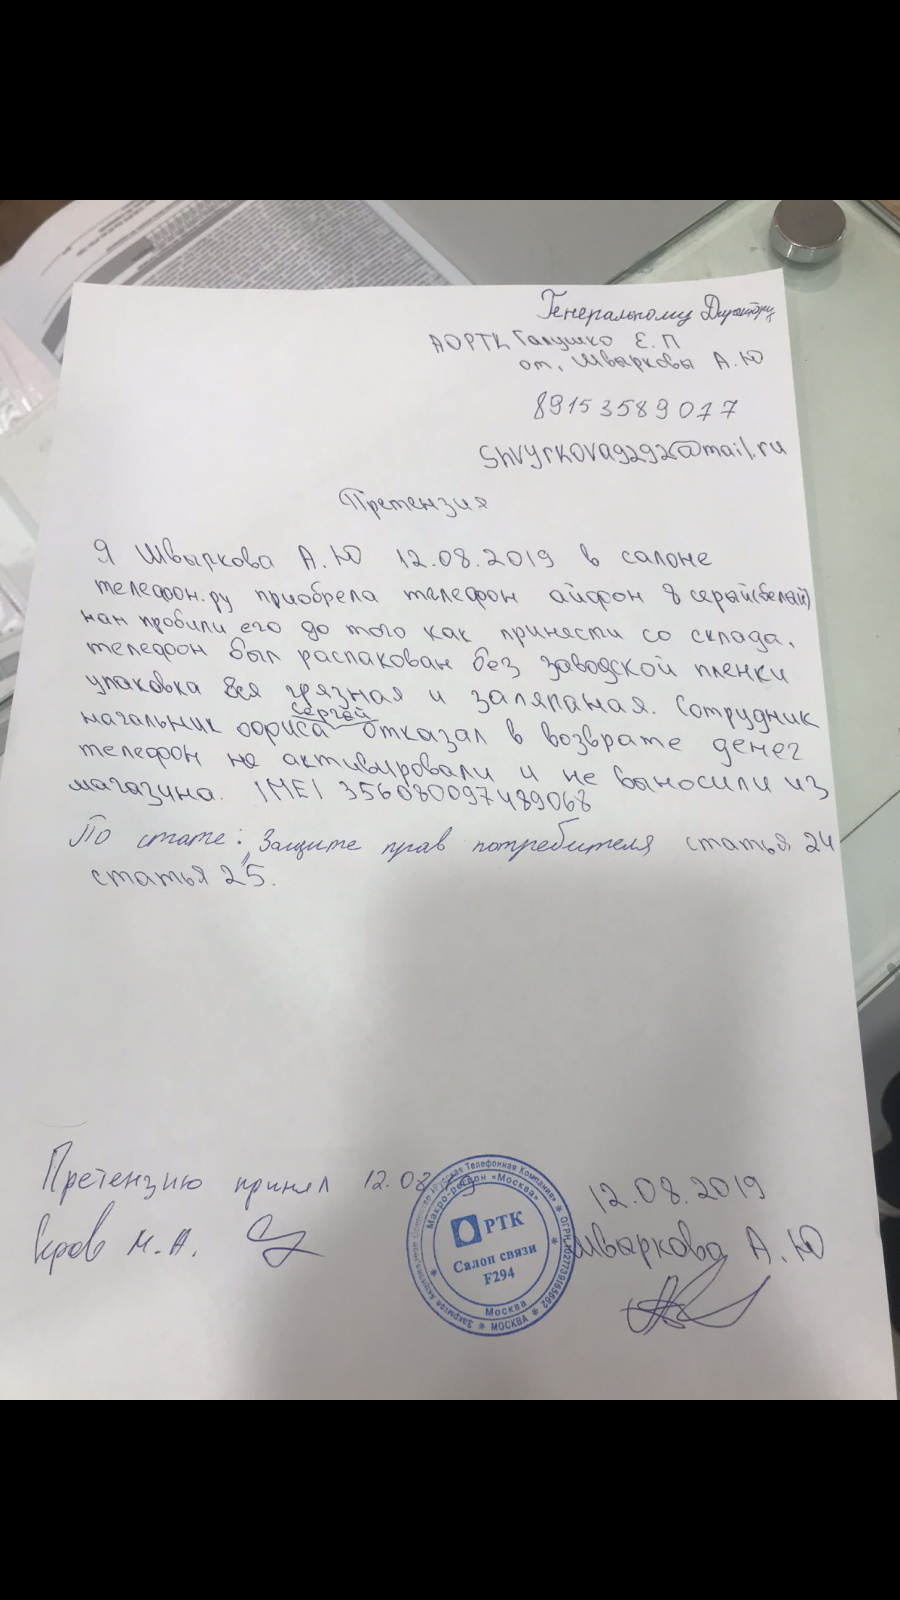 Генеральному Директору
АОРТК Галушко Е.П
от, Швырковы А.Ю
89153589077
Shvyrkova9292@mail.ru
Претензия
Я Швыркова А.Ю 12.08.2019 в салоне
телефон.ру приобрела телефон айфон 8 серый(белый)
нам пробили его до того как принести со склада,
телефон был распакован без заводской пленки
упаковка вся грязная и заляпаная. Сотрудник
Сергей
начальник офриса отказал в возврате денег
телефон не активировали и не выносили из
магазина. IMEI 356080097489068
По стате: Защите прав потребителя статья 24
статья 25.
Претензию принял 12.08.19
М.А.
12.08.2019
Швыркова А.Ю
Закрытое акционерное общество «Русская Телефонная Компания» * ОГРН 1027739165662 * МОСКВА *
Макро-регион «Москва»
РТК
Салон связи
F294
Москва